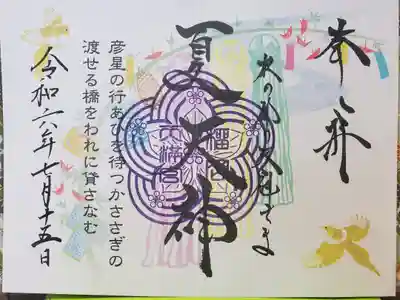 奉拝
夏天神
榴岡
天満宮
彦星の行あひを待つかささぎの
渡せる橋をわれに貸さなむ
令和六年七月十五日